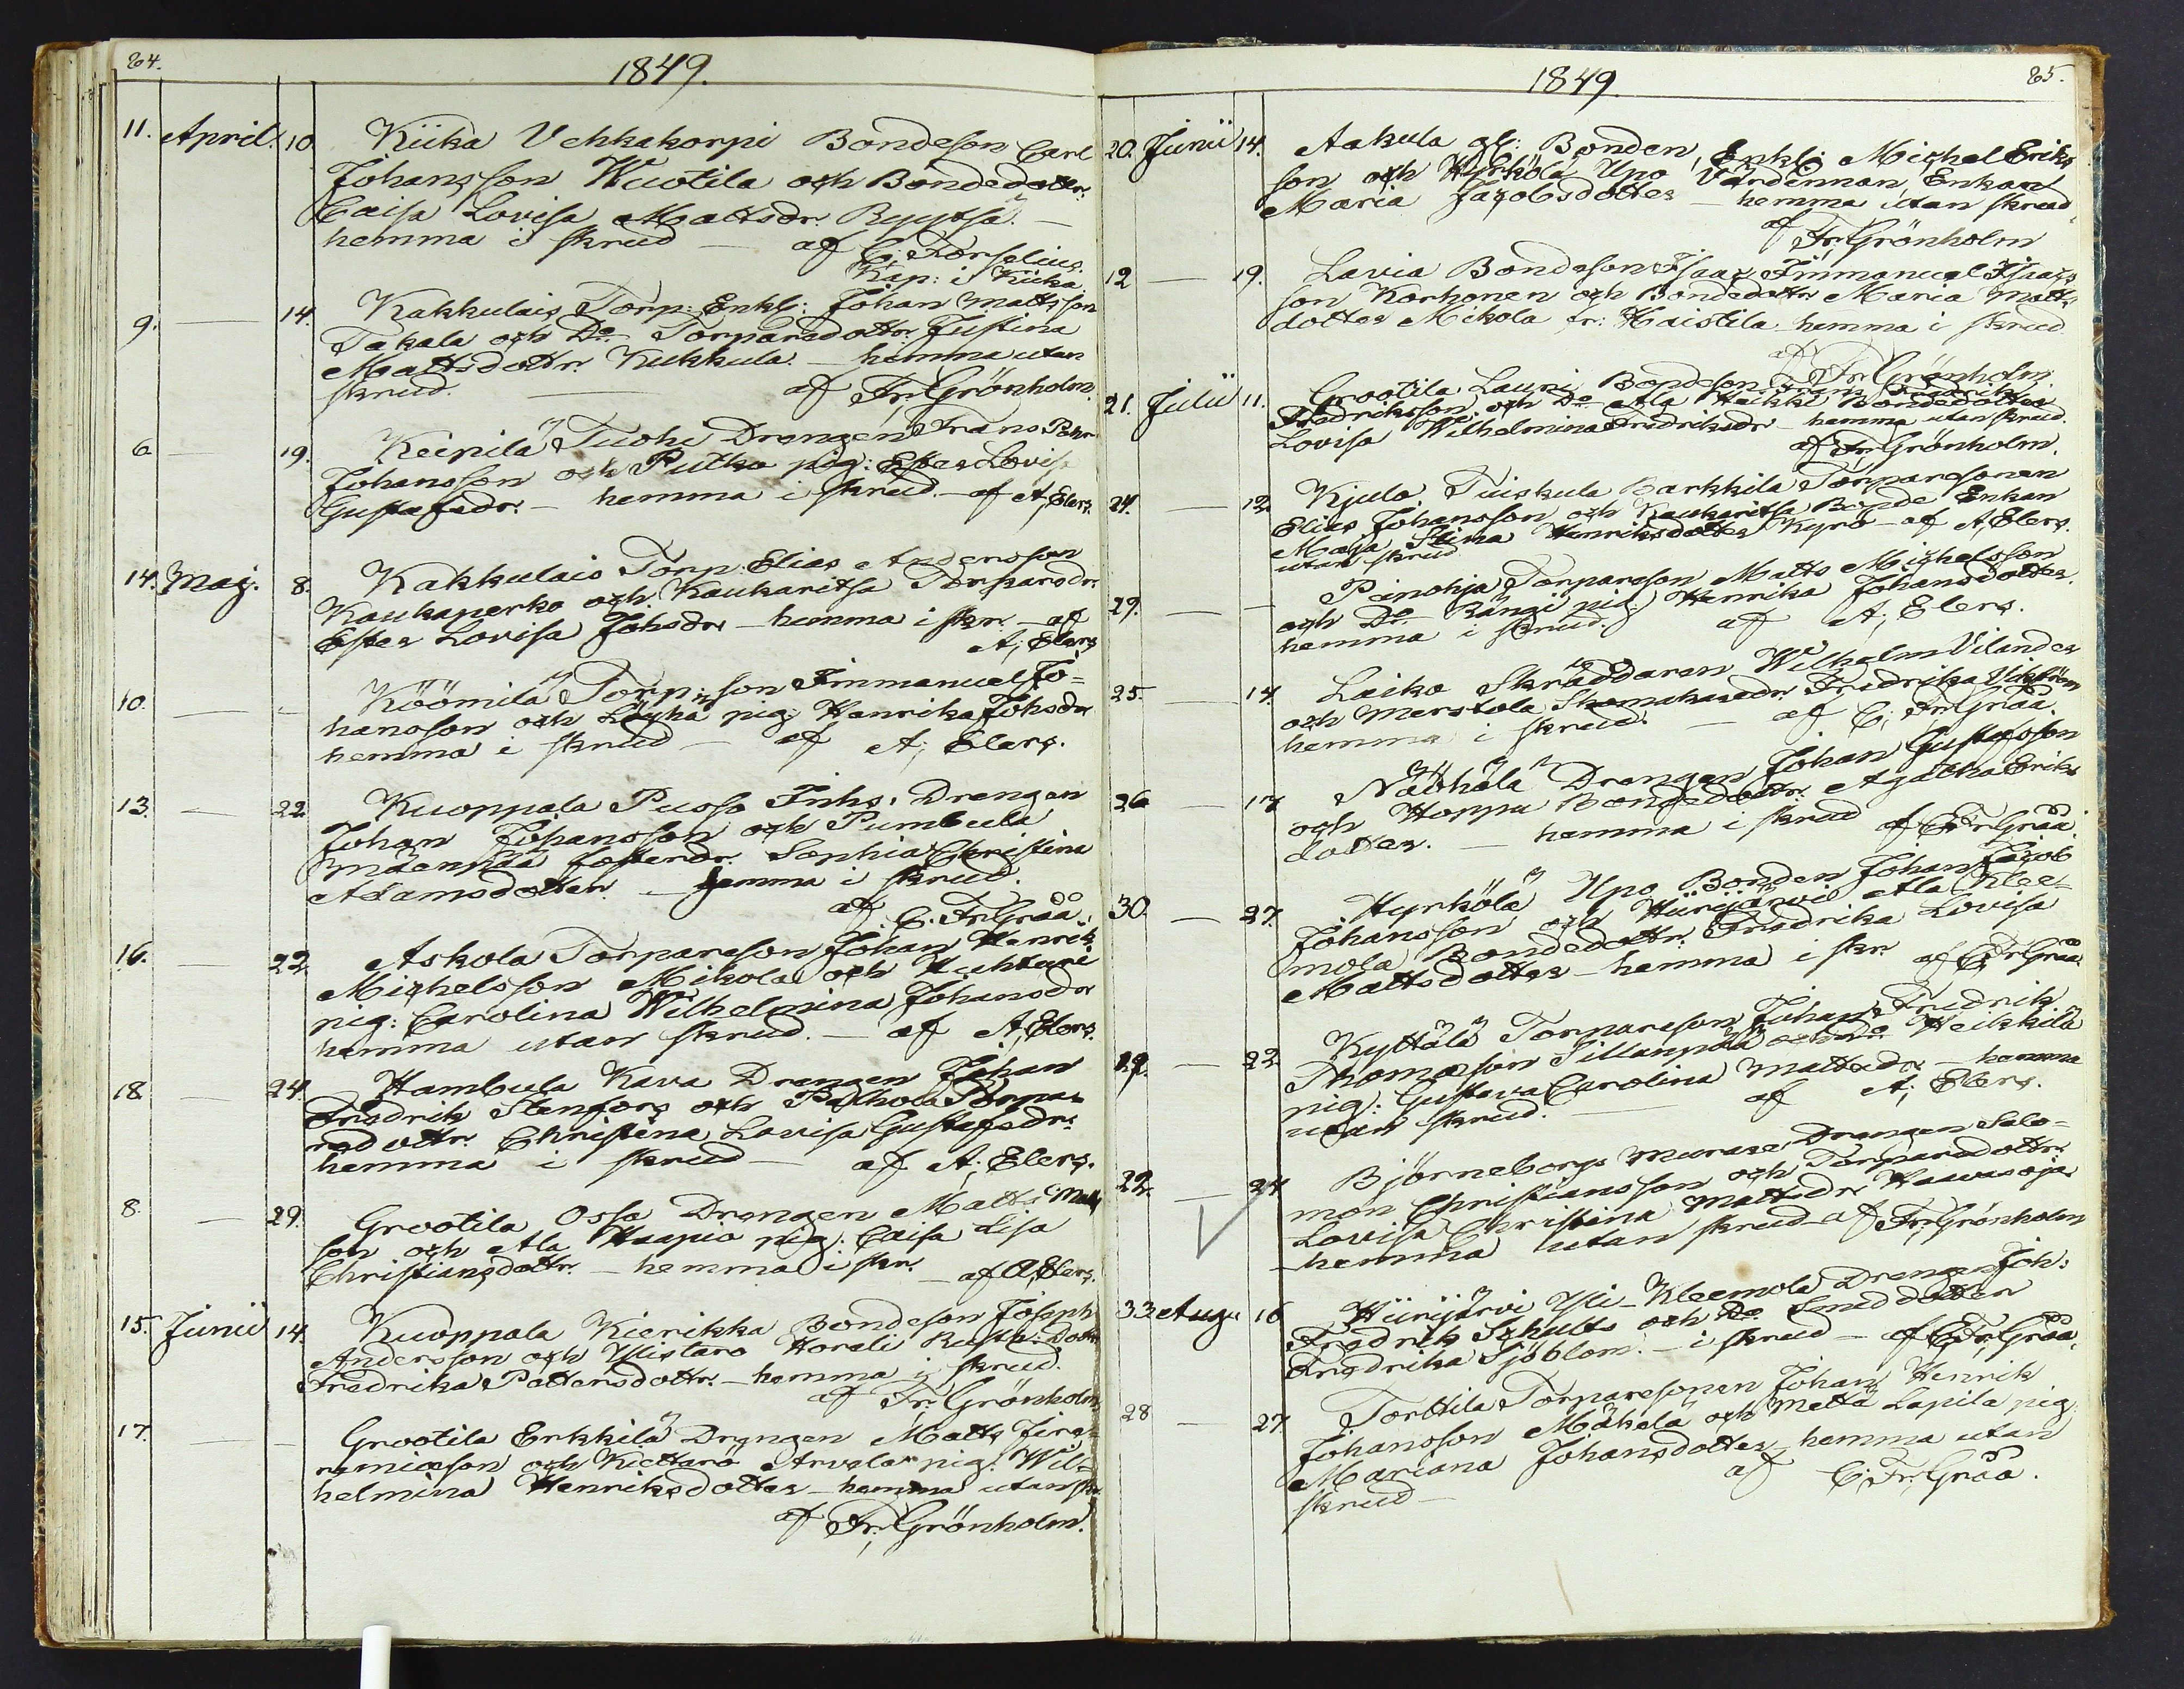 64.
1849.
11. April. 10. Kiika Vehkakorpi Bondeson Carl
Johansson Wuotila och Bondedottr.
Caisa Lovisa Mattsdr. Ryytsä. —
hemma i skrud — af C. Forselius.
Kap: i Kiika.
9. — 14. Kakkulais Torp: Enkl: Johan Mattsson
Takala och Do Torparedottr. Justina
Mattsdottr. Kukkula. — hemma utan
skrud. — af Fr: Grönholm.
6 — 19. Keipilä Tuohi Drengen Frans Pehr
Johansson och Putko pig: Ester Lovisa
Gustafsdr. — hemma i skrud. — af A, Elers.
14. Maj. 8. Kakkulais Torp. Elias Andersson
Kaukaperko och Kaukaritsa Torparedr.
Ester Lovisa Johsdr — hemma i skr. — af
A; Elers
10. — - Köömilä Torp: son Immanuel Jo=
hansson och Löyhä pig: Henrika Johsdr
hemma i skrud — af A; Elers.
13. — 22. Kuoppala Pusso Inhs: Drengen
Johan Johansson och Pumbula
Mäenpää fosterdr. Sophia Christina
Adamsdotter. — hemma i skrud.
af C. Fr: Gråå.
16. — 22. Askola Torpareson Johan Henrik
Michelsson Mikola och Huhturi
pig: Carolina Wilhelmina Johansdr
hemma utan skrud. — af A, Elers.
18 — 24 Hambula Kava Drengen Johan
Fredrik Stenfors och Palhola Torpa-
redottr. Christina Lovisa Gustafsdr.
hemma i skrud — af A; Elers.
8. — 29. Grootila Ossa Drengen Matts Matts
son och Ala Haapio pig: Caisa Lisa
Christiansdottr. — hemma i skr. — af A, Elers.
15. Junii 14. Kuoppala Kierikka Bondeson Joseph
Andersson och Ylistaro Horeli Rusth: Dottr
Fredrika Pettersdottr. — hemma i skrud.
af Fr: Grönholm.
17. — - Grootila Erkkilä Drengen Matts Jere-
remiasson och Kiettarö Arvela pig: Wil-
helmina Henriksdotter — hemma utan skr.
af Fr: Grönholm.
1849.
65.
20. Junii 14. Aakula gl: Bonden, Enkl: Michel Eriks
son och Hyrkölä Upo Värdinnan Enkan
Maria Jacobsdotter — hemma utan skrud
af Fr: Grönholm
12 — 19. Lavia Bondeson Isaac Immanuel Isaacs
son Korhonen och Bondedottr. Maria Matts
dotter Mikola fr: Haistila hemma i skrud
af Fr: Grönholm
21. Julii 11. Grootila Lauri Bondeson Frans Fredrik
Fredriksson och Do Ala Heikki Bondedotter
Lovisa Wilhelmina Fredriksdr — hemma utan skrud.
af Fr: Grönholm.
24. — 12. Kjulo Tuiskula Parkkila Torparesonen
Elias Johansson och Kaukaritsa Bonde Enkan
Maja Stina Henriksdotter Kyrö — af A; Elers.
utan skrud
29. — - Punohja Torpareson Matts Michelsson
och Do Rängi pig: Henrika Johansdotter.
hemma i skrud. af A; Elers.
25. — 14. Laiko Skräddaren Wilhelm Vilander
och Merstola Skomakaredr. Fredrika Vikström
hemma i skrud. — af C; Fr: Gråå.
26 — 17 Näöhälä Drengen Johan Gustafsson
och Hoppu Bondedottr. Agatha Eriks
dotter. — hemma i skrud af C; Fr: Gråå.
30. — 27. Hyrkölä Upo Bonden Johan Jacob
Johansson och Hiirijärvi Ala Klee-
mola Bondedottr. Fredrika Lovisa
Mattsdotter — hemma i skr. af C; Fr: Gråå.
27. — 22 Kyttälä Torpareson Johan Fredrik
Thomasson Sillanpää och Do Heikkilä
pig: Gustava Carolina Mattsdr — hemma
utan skrud. — af A; Elers.
22. — 24 Björneborgs Murare Drengen Salo-
mon Christiansson och Torparedottr.
Lovisa Christina Mattsdr. Haavisoja
hemma utan skrud af Fr: Grönholm
33 Aug. 16 Hiirijärvi Yli-Kleemola Drengen Joh:
Fredrik Schults och Do Smeddotter
Fredrika Sjöblom. — i skrud — af C; Fr: Gråå.
28 — 27 Torttila Torparesonen Johan Henrik
Johansson Mäkelä och Mattä Lapila pig:
Mariana Johansdotter hemma utan
skrud — af C; Fr: Gråå.